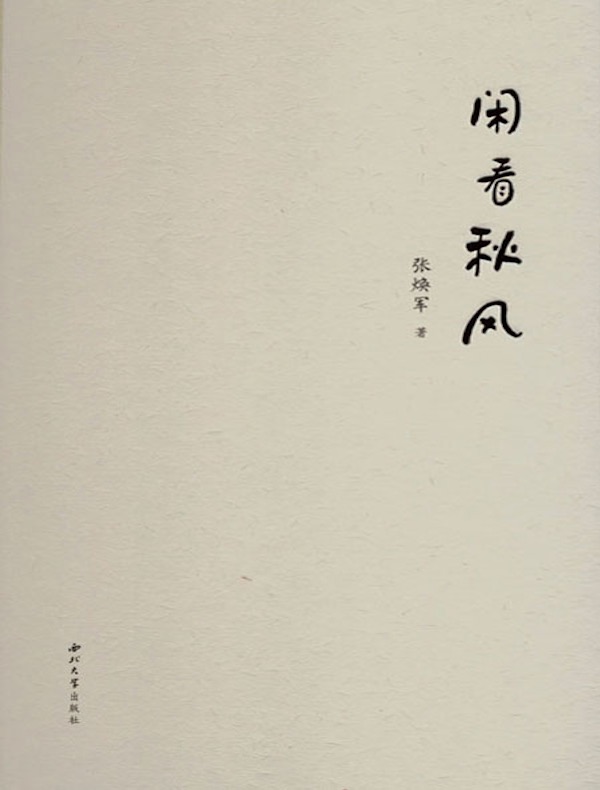 闲看秋风
张焕军 著
西北大学出版社